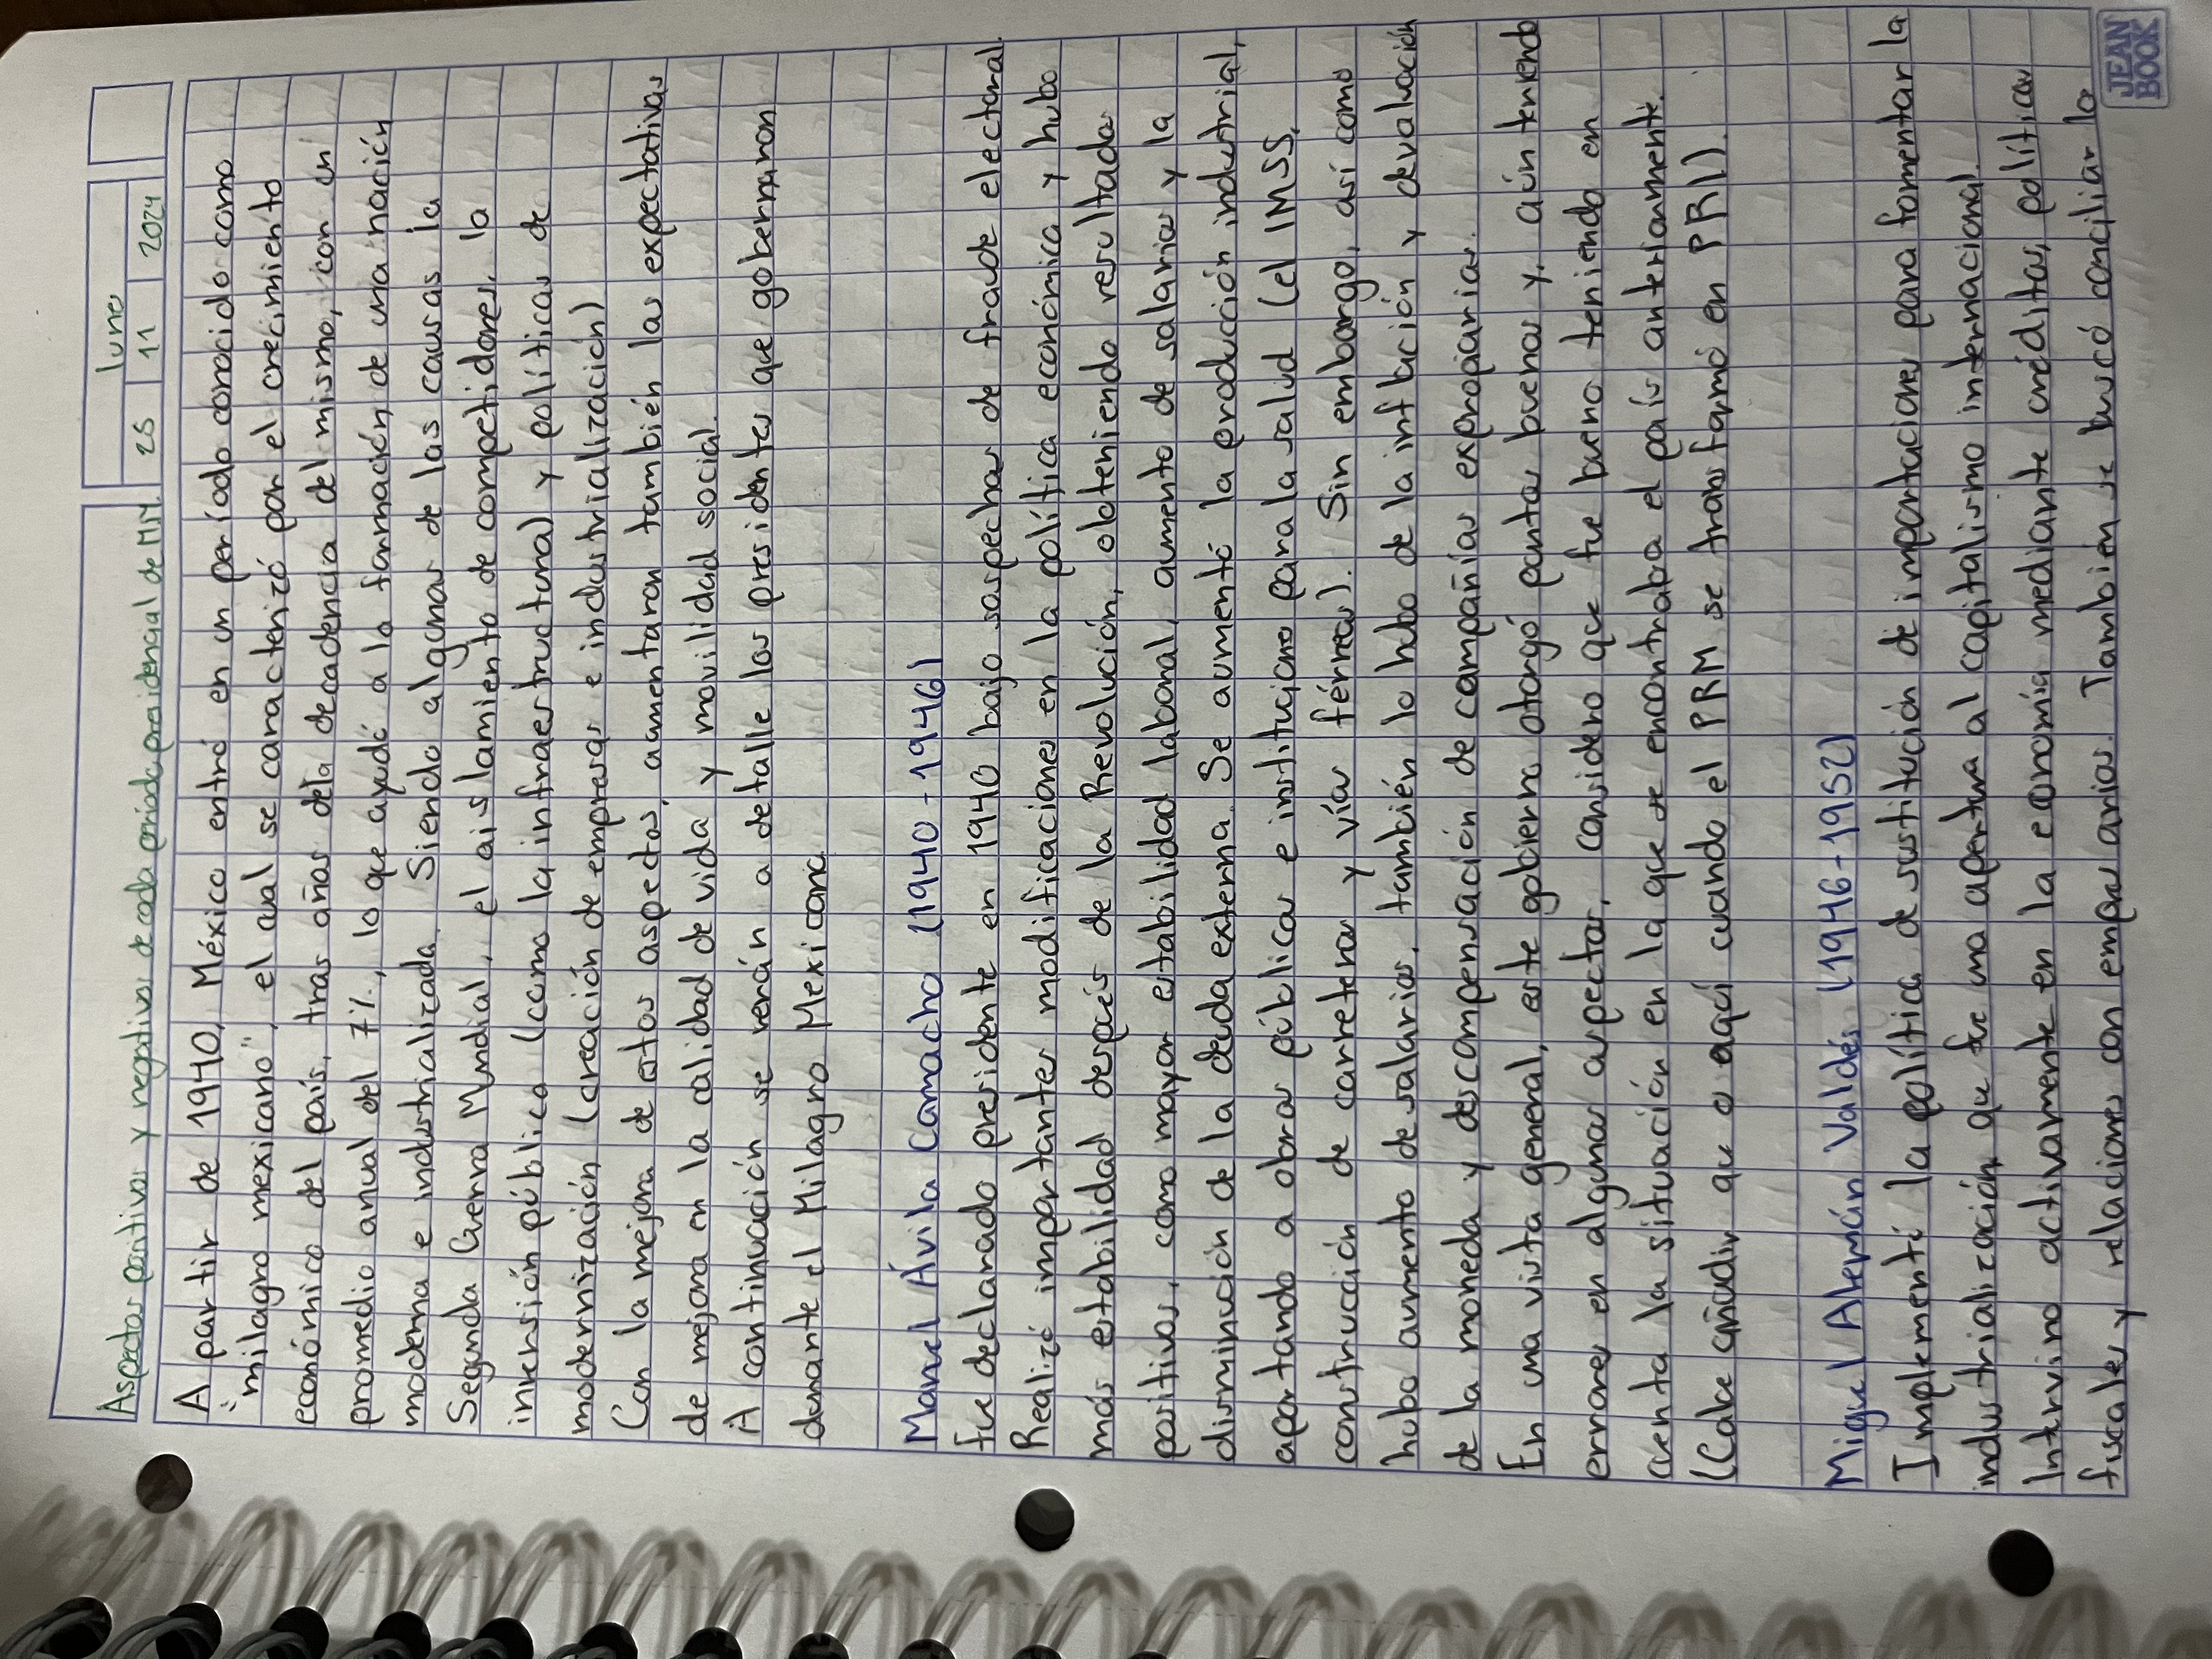 Aspectos positivos y negativos de cada periodo presidencial de MM.
lunes
25 11 2024
A partir de 1940, México entró en un período conocido como
"milagro mexicano", el cual se caracterizó por el crecimiento
económico del país, tras años de la decadencia del mismo, con un
promedio anual del 7%, lo que ayudó a la formación de una nación
moderna e industrializada. Siendo algunas de las causas la
Segunda Guerra Mundial, el aislamiento de competidores, la
inversión pública (como la infraestructura) y políticas de
modernización (creación de empresas e industrialización)
Con la mejora de estos aspectos, aumentaron también las expectativas
de mejora en la calidad de vida y movilidad social.
A continuación se verán a detalle los presidentes que gobernaron
durante el Milagro Mexicano.
Manuel Ávila Camacho (1940-1946)
Fue declarado presidente en 1940 bajo sospechas de fraude electoral.
Realizó importantes modificaciones en la política económica y hubo
más estabilidad después de la Revolución, obteniendo resultados
positivos, como mayor estabilidad laboral, aumento de salarios y la
disminución de la deuda externa. Se aumentó la producción industrial,
aportando a obras públicas e instituciones para la salud (el IMSS,
construcción de carreteras y vías férreas). Sin embargo, así como
hubo aumento de salarios, también lo hubo de la inflación y devaluación
de la moneda y descompensación de compañías expropiarias.
En una vista general, este gobierno otorgó puntos buenos y, aún teniendo
errores en algunos aspectos, considero que fue bueno teniendo en
cuenta la situación en la que se encontraba el país anteriormente.
(Cabe añadir que a aquí cuando el PRM se transformó en PRI).
Miguel Alemán Valdés (1946-1952)
Implementó la política de sustitución de importaciones para fomentar la
industrialización, que fue una apertura al capitalismo internacional.
Intervino activamente en la economía mediante créditos, políticas
fiscales y relaciones con empresarios. También se buscó conciliar la
JEAN
BOOK